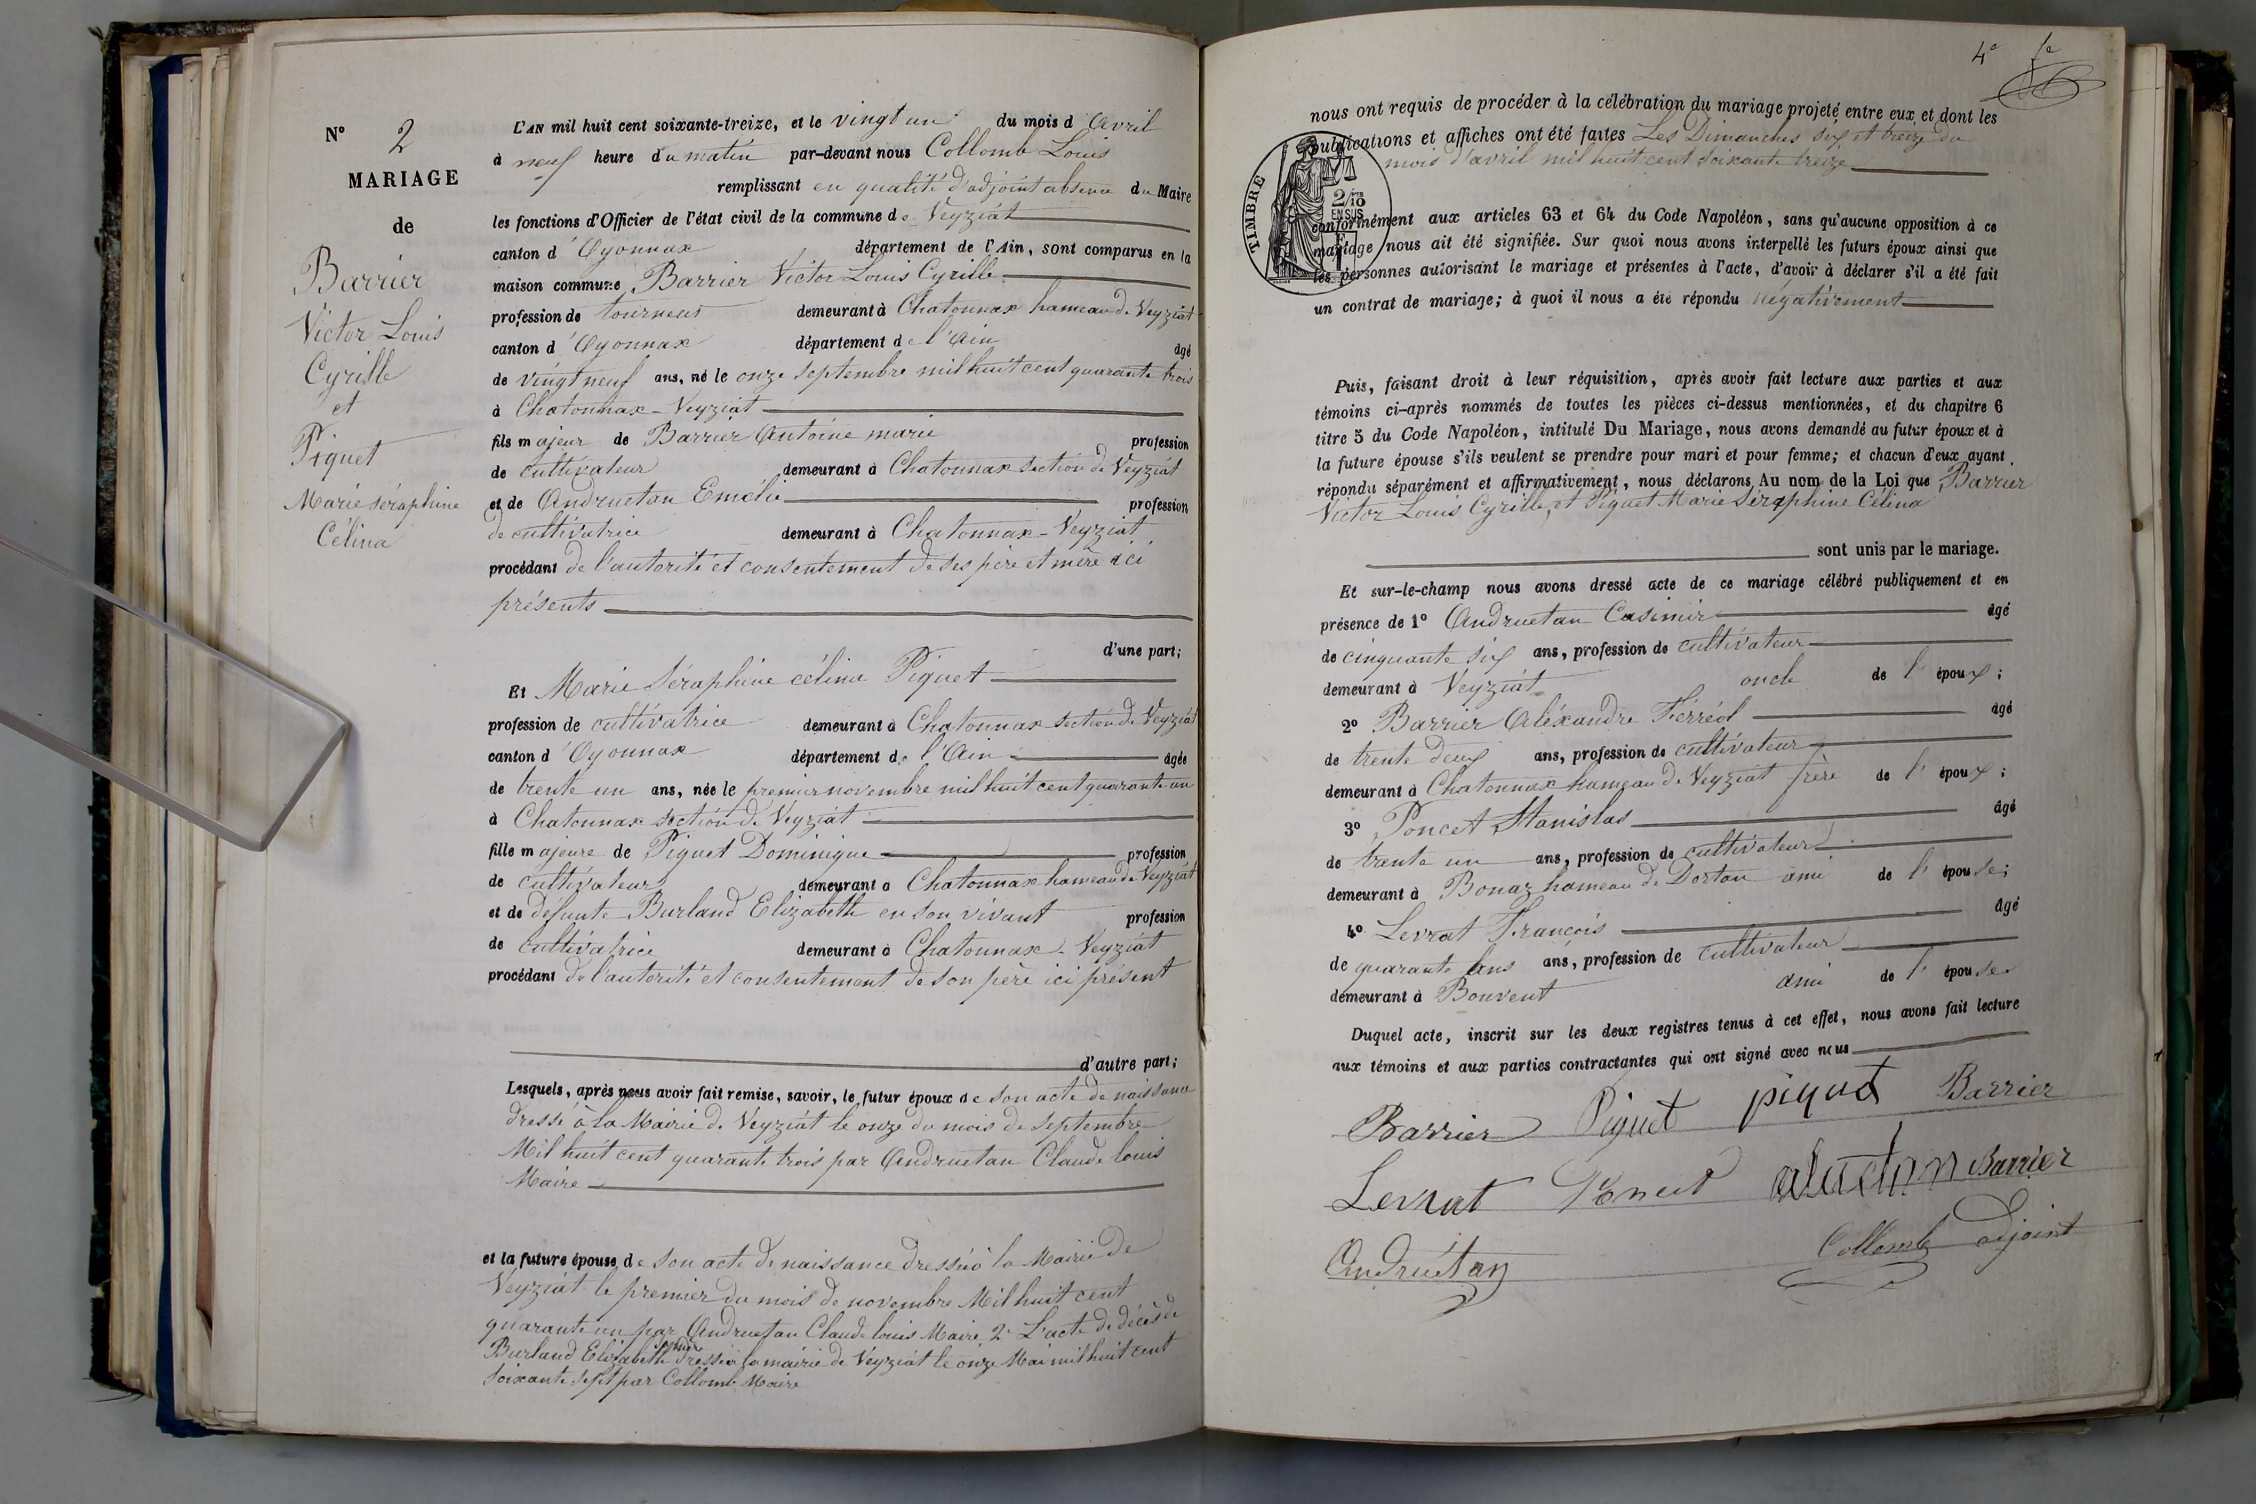 N° 2
MARIAGE
de
Barrier
Victor Louis
Cyrille
et
Piquet
Marie séraphine
Célina
L'AN mil huit cent soixante-treize, et le vingt un du mois d Avril
à neuf heure du matin par-devant nous Collomb Louis
remplissant en qualité d'adjoint absence du Maire
les fonctions d'Officier de l'état civil de la commune de Veyziat
canton d'Oyonnax département de l'Ain, sont comparus en la
maison commune Barrier Victor Louis Cyrille
profession de tourneur demeurant à Chatonnax hameau de Veyziat
canton d'Oyonnax département de l'Ain âgé
de vingt neuf ans, né le onze septembre mil huit cent quarante trois
à Chatonnax - Veyziat
fils majeur de Barrier Antoine marie profession
de cultivateur demeurant à Chatonnax section de Veyziat
et de Andruetan Emélie profession
de cultivatrice demeurant à Chatonnax - Veyziat
procédant de l'autorité et consentement de ses père et mère ici
présents
d'une part;
Et Marie Séraphine célina Piquet
profession de cultivatrice demeurant à Chatonnax section de Veyziat
canton d'Oyonnax département de l'Ain âgée
de trente un ans, née le premier novembre mil huit cent quarante un
à Chatonnax section de Veyziat
fille majeure de Piquet Dominique profession
de cultivateur demeurant à Chatonnax hameau de Veyziat
et de défunte Burland Elizabeth en son vivant profession
de cultivatrice demeurant à Chatonnax - Veyziat
procédant de l'autorité et consentement de son père ici présent
d'autre part;
Lesquels, après nous avoir fait remise, savoir, le futur époux de son acte de naissance
dressé à la Mairie de Veyziat le onze du mois de septembre
Mil huit cent quarante trois par Andruetan Claude louis
Maire
et la future épouse de son acte de naissance dressé à la Mairie de
Veyziat le premier du mois de novembre Mil huit cent
quarante un par Andruetan Claude louis Maire 2° L'acte de décès de
Burland Elizabeth dressé à la mairie de Veyziat le onze Mai mil huit cent
soixante sept par Collomb Maire
4e
nous ont requis de procéder à la célébration du mariage projeté entre eux et dont les
publications et affiches ont été faites Les Dimanches six et treize du
mois d'avril mil huit cent soixante treize
TIMBRE
2/10
EN SUS
conformément aux articles 63 et 64 du Code Napoléon, sans qu'aucune opposition à ce
mariage nous ait été signifiée. Sur quoi nous avons interpellé les futurs époux ainsi que
les personnes autorisant le mariage et présentes à l'acte, d'avoir à déclarer s'il a été fait
un contrat de mariage; à quoi il nous a été répondu négativement
Puis, faisant droit à leur réquisition, après avoir fait lecture aux parties et aux
témoins ci-après nommés de toutes les pièces ci-dessus mentionnées, et du chapitre 6
titre 5 du Code Napoléon, intitulé Du Mariage, nous avons demandé au futur époux et à
la future épouse s'ils veulent se prendre pour mari et pour femme; et chacun d'eux ayant
répondu séparément et affirmativement, nous déclarons Au nom de la Loi que Barrier
Victor Louis Cyrille, et Piquet Marie Séraphine Célina
sont unis par le mariage.
Et sur-le-champ nous avons dressé acte de ce mariage célébré publiquement et en
présence de 1° Andruetan Casimir âgé
de cinquante six ans, profession de cultivateur
demeurant à Veyziat oncle de l'époux;
2° Barrier Aléxandre Férréol âgé
de trente deux ans, profession de cultivateur
demeurant à Chatonnax hameau de Veyziat frère de l'époux;
3° Poncet Stanislas âgé
de trente un ans, profession de cultivateur
demeurant à Bonaz hameau de Dortan ami de l'épouse;
4° Levrat François âgé
de quarante ans, profession de cultivateur
demeurant à Bouvent ami de l'épouse
Duquel acte, inscrit sur les deux registres tenus à cet effet, nous avons fait lecture
aux témoins et aux parties contractantes qui ont signé avec nous
Barrier Piquet piquet Barrier
Levrat Poncet Barrier
Andruétan Collomb adjoint